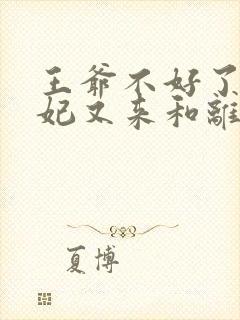 王爷不好了
妃又来和離
夏博